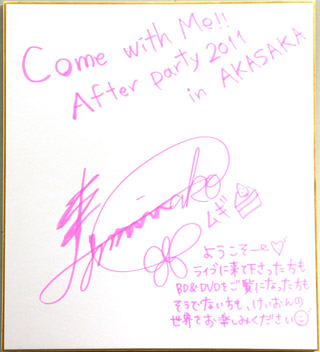 Come with Me!!
After party 2011
in AKASAKA
minako
ムギ
ようこそーe♡
ライブに来て下さった方も
BD&DVDをご覧になった方も
そうでない方も、けいおんの
世界をお楽しみください